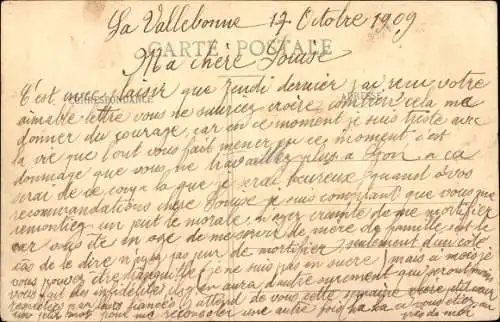 La Vallebonne 17 Octobre 1909
CARTE POSTALE
Ma chère Louise
CORRESPONDANCE ADRESSE
C'est avec plaisir que jeudi dernier j'ai reçu votre
aimable lettre vous ne saurez croire combien cela me
donner du courage, car en ce moment je suis triste avec
la vie que l'out vous fait mener en ce moment, c'est
dommage que vous ne travaillez plus a Lyon, a ca
vrai de ce coup la que je serai heureux quand a vos
recommandations chère Louise je suis comptant que vous me
remontiez un peut le morale, n'ayez crainte de me mortifier
car vous ête en age de me servir de mère de famille est le
cas de le dire n'ayez pas peur de mortifier seulement d'un côté
vous pouvez être tranquille je ne suis pas en sucre mais a moi je
vous des infidélités il y en aura d'autre surement qui
fiancés attend de vous cette semaine chère
un mot pour me reconsoler une autre fois
près de moi